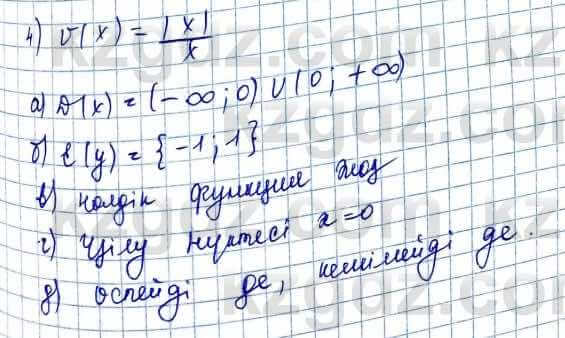 4) v(x) = |x|/x
а) D(x) = (-∞; 0) ∪ (0; +∞)
б) E(y) = {-1; 1}
в) нөлдік функция жоқ
г) үзілу нүктесі x = 0
д) өспейді де, кемімейді де.
kzgdz.com